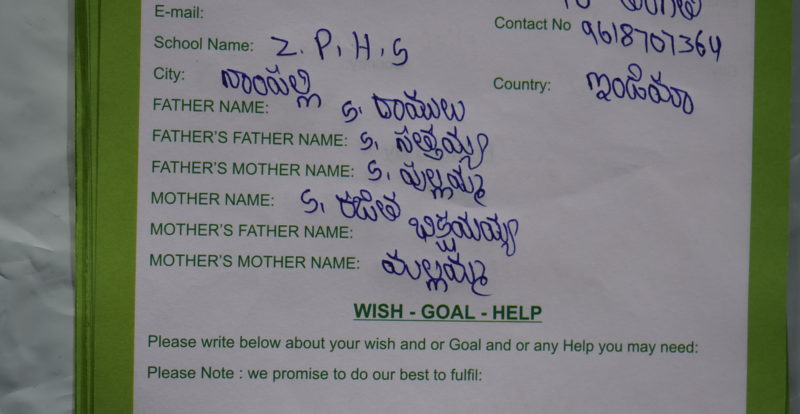 E-mail:
Contact No 9618707364
School Name: Z. P. H. S
City: నాంపల్లి Country: ఇండియా
FATHER NAME: S. రాములు
FATHER'S FATHER NAME: S. సత్తయ్య
FATHER'S MOTHER NAME: S. మల్లమ్మ
MOTHER NAME: S. కవిత
MOTHER'S FATHER NAME: భిక్షమయ్య
MOTHER'S MOTHER NAME: మల్లమ్మ
WISH - GOAL - HELP
Please write below about your wish and or Goal and or any Help you may need:
Please Note : we promise to do our best to fulfil: